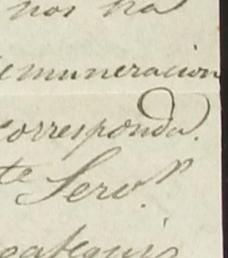 nos ha
emuneracion
corresponda.
te Serv.r